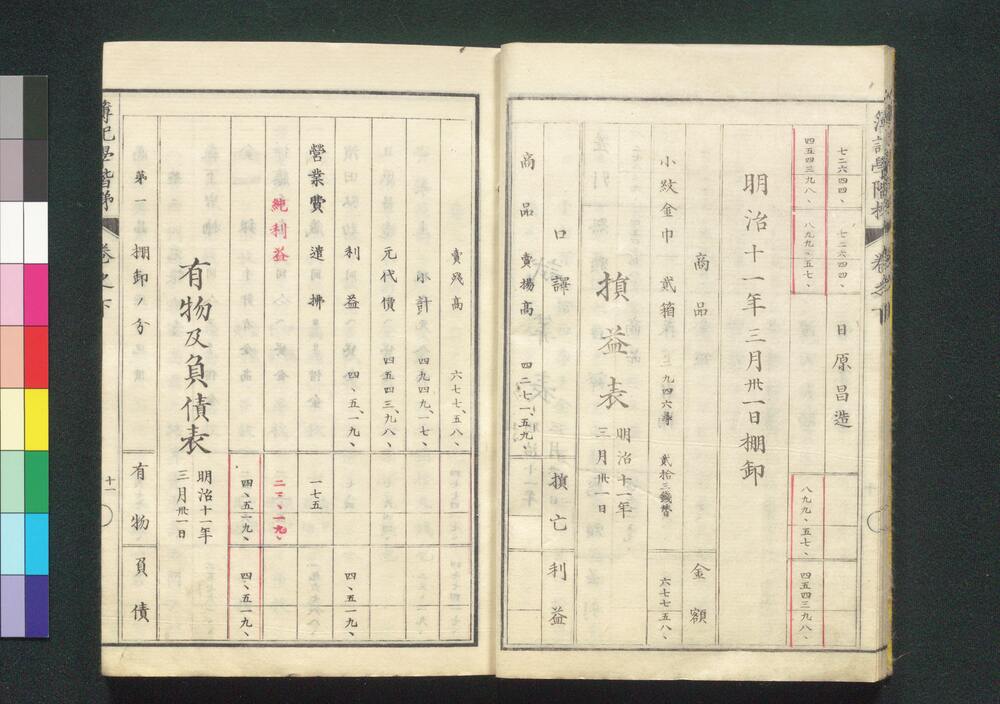 簿記學階梯 卷之下
七二六四四、 七二六四四、 日 原昌造
四五四三九八、 八九九、五七、 八九九、五七、 四五四三九八、
明治十一年三月卅一日棚卸
高品 金額
小紋金巾 貳箱 九四六 貳拾三錢替 六七七五八、
損益表 明治十一年
三月卅一日
口譯 損亡 利益
商品 賣揚高 四二七一、五九、
賣殘高 六七七、五八、
小計 四九四九、一七、
元代價 四五四三、九八、
利益 四、五、一九、 四、五一九、
營業費 遣拂 一七五
純利益
四、五一九、 四、五一九、
有物及負債表 明治十一年
三月卅一日
有物 負債
第一 棚卸ノ分
簿記學階梯 卷之下 十一